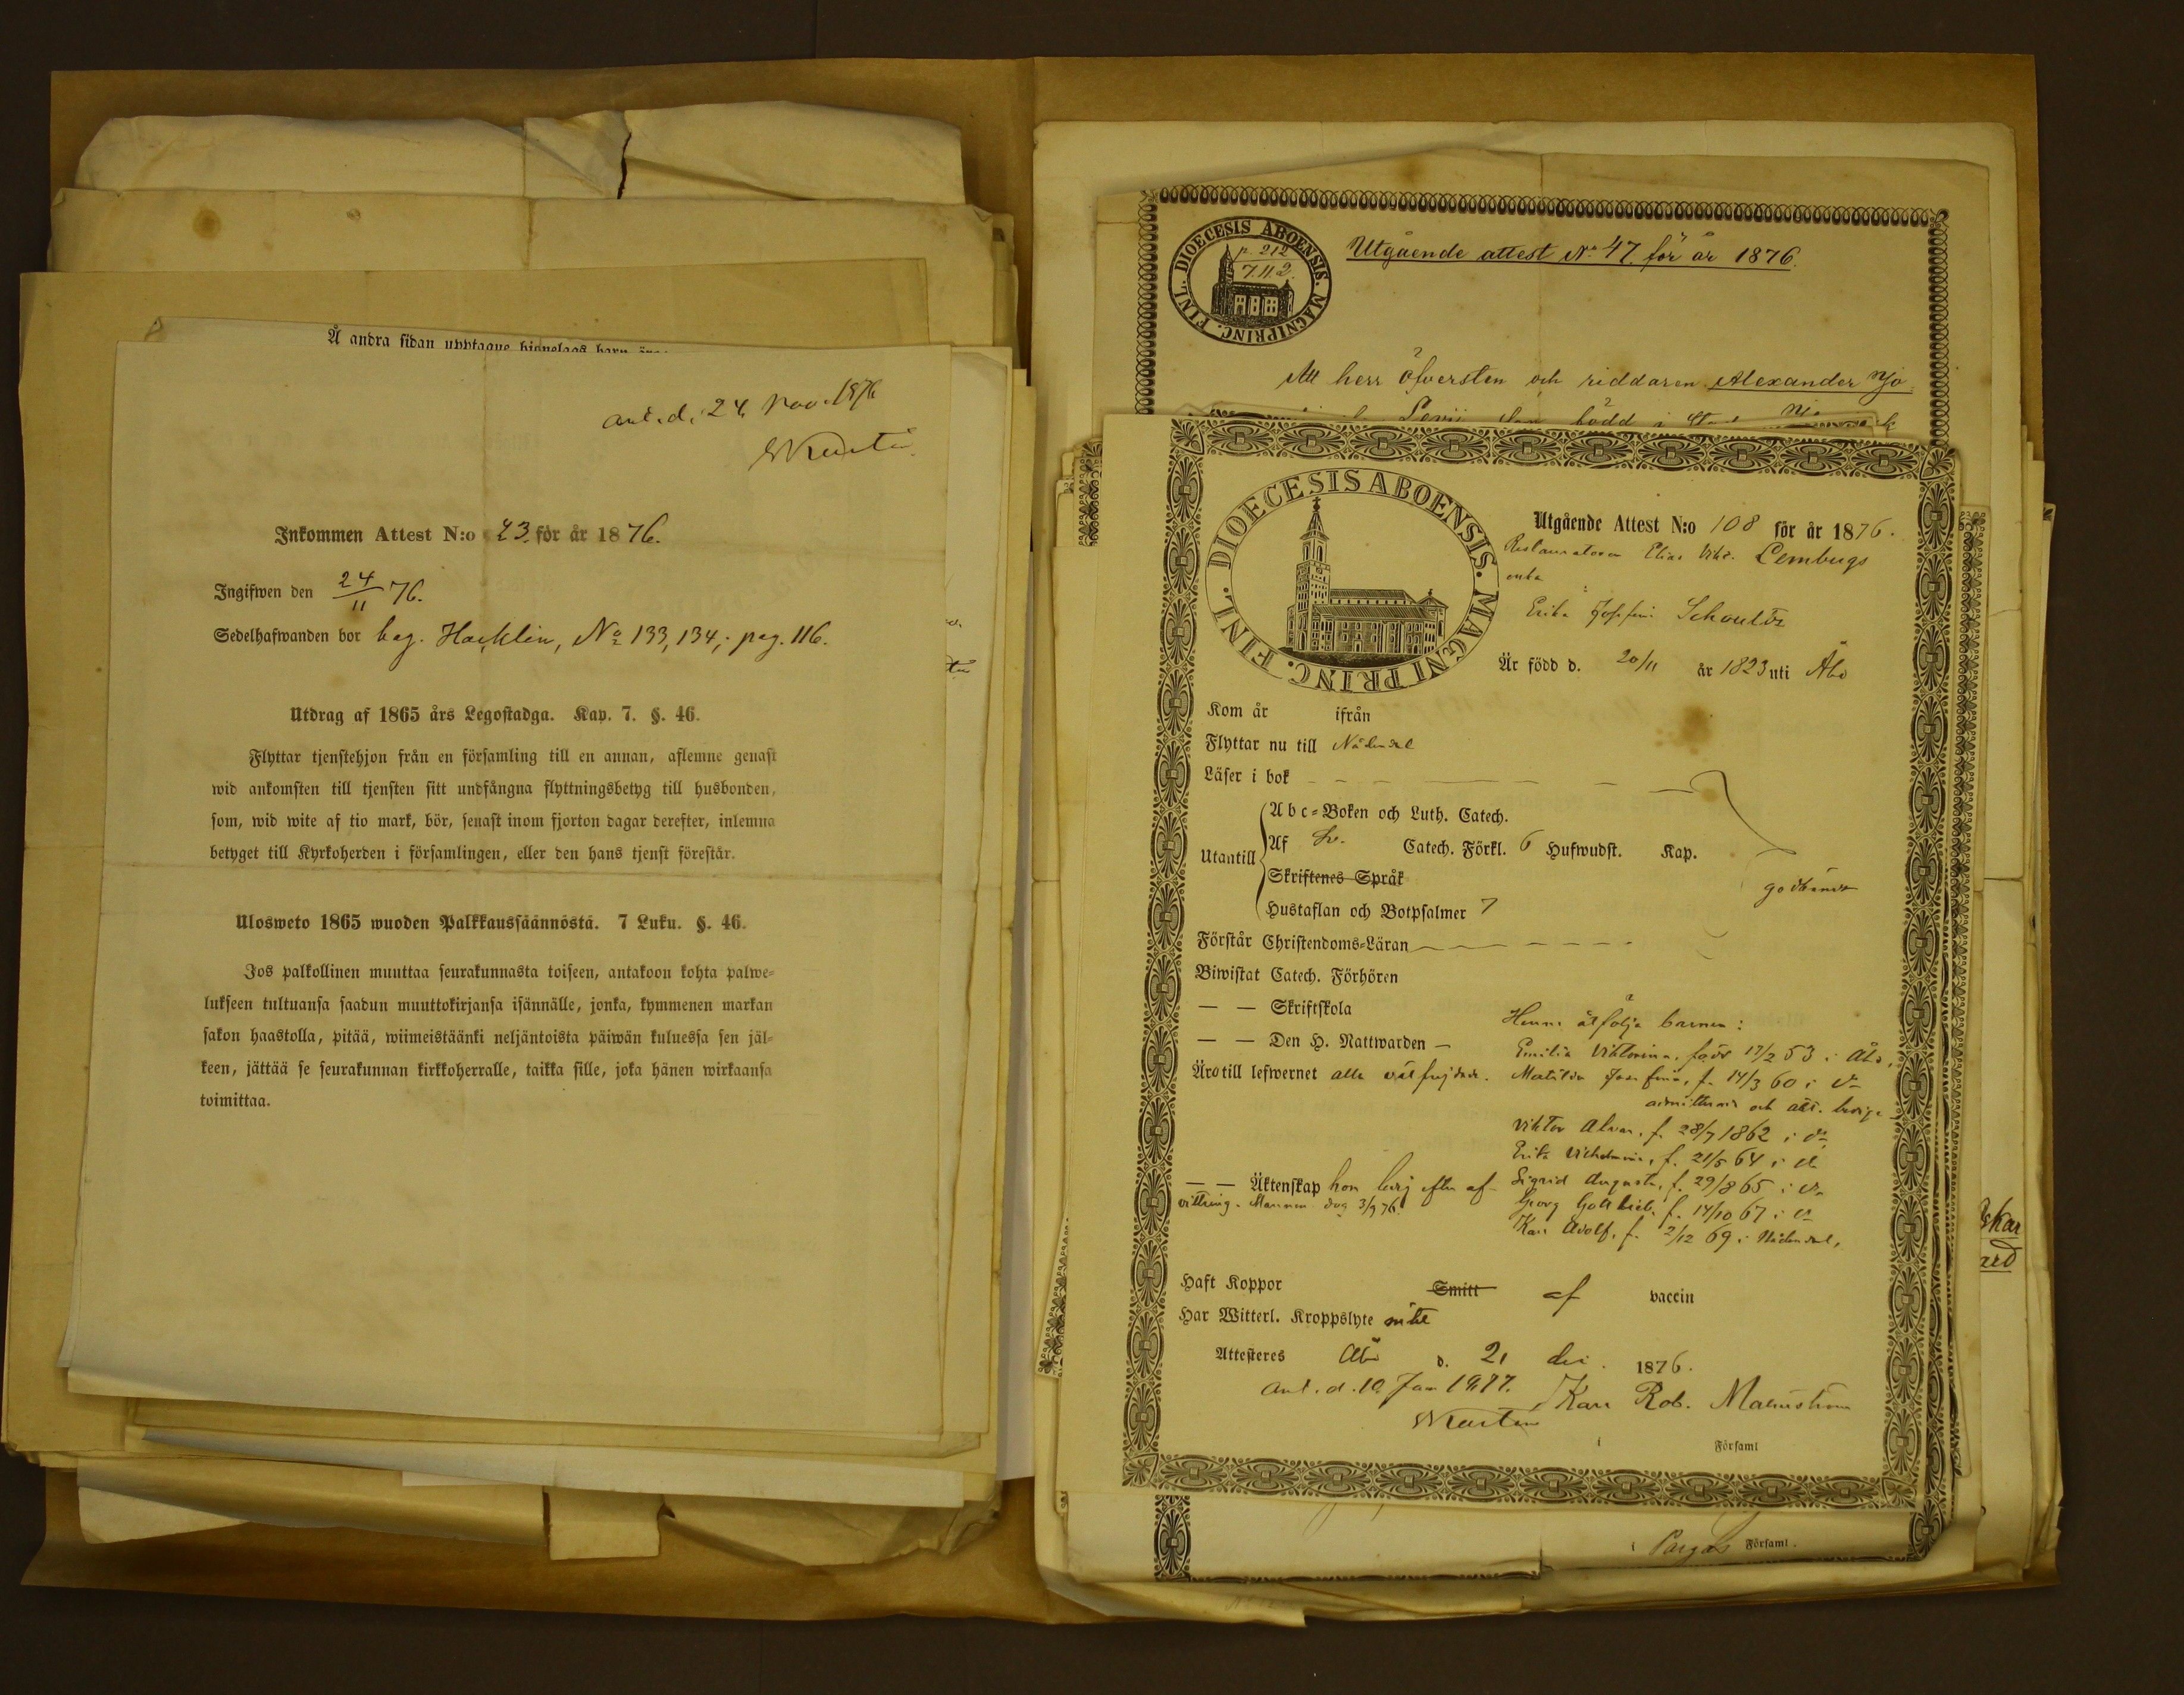 Å andra sidan upptagne hjonelags barn
ant. d. 24 Nov. 1876
Inkommen Attest N:o 43. för år 1876.
Ingifwen den 24/11 76.
Sedelhafwanden bor beg. Hacklin, No 133, 134; pag. 116.
Utdrag af 1865 års Legostadga. Kap. 7. §. 46.
Flyttar tjenstehjon från en församling till en annan, aflemne genast
wid ankomsten till tjensten sitt undfångna flyttningsbetyg till husbonden,
som, wid wite af tio mark, bör, senast inom fjorton dagar derefter, inlemna
betyget till Kyrkoherden i församlingen, eller den hans tjenst förestår.
Ulosweto 1865 wuoden Palkkaussäännöstä. 7 Luku. §. 46.
Jos palkollinen muuttaa seurakunnasta toiseen, antakoon kohta palwe=
lukseen tultuansa saadun muuttokirjansa isännälle, jonka, kymmenen markan
sakon haastolla, pitää, wiimeistäänki neljäntoista päiwän kuluessa sen jäl=
keen, jättää se seurakunnan kirkkoherralle, taikka sille, joka hänen wirkaansa
toimittaa.
DIOECESIS ABOENSIS. MAGNI PRINC. FINL.
p. 212
7.11.2.
Utgående attest No 47. för år 1876.
Att herr öfversten och riddaren Alexander
född i
DIOECESIS ABOENSIS. MAGNI PRINC. FINL.
Utgående Attest N:o 108 för år 1876.
Restauratoren Elias Vikt. Lembugs
enka
Erika Josefina Schoultz
Är född d. 20/11 år 1823 uti Åbo
Kom år ifrån
Flyttar nu till Nådendal
Läser i bok
Utantill
Abc=Boken och Luth. Catech.
Af Sv. Catech. Förkl. 6 Hufwudst. Kap.
Skriftenes Språk
godkände
Hustaflan och Botpsalmer 7
Förstår Christendoms=Läran
Biwistat Catech. Förhören
— — Skriftskola
— — Den H. Nattwarden —
Äro till lefwernet alla väl frejdade.
Henne åtfölja barnen:
Emilia Viktorina, född 17/2 53 i Åbo,
Matilda Josefina, f. 14/3 60 i do
admitterade och att. lediga
Viktor Alvar, f. 28/7 1862 i do
Erika Vilhelmina, f. 21/5 64 i do
Sigrid Augusta, f. 29/8 65 i do
Georg Gottlieb, f. 14/10 67 i do
Karl Adolf, f. 2/12 69 i Nådendal,
— — Äktenskap hon ledig efter af-
vittring. Mannen dog 3/9 76.
Haft Koppor Smitt af vaccin
Har Witterl. Kroppslyte intet
Attesteres Åbo d. 21 dec. 1876.
ant. d. 10 Jan 1877.
Karl Rob. Malmström
Församl
i Pargas Församl.